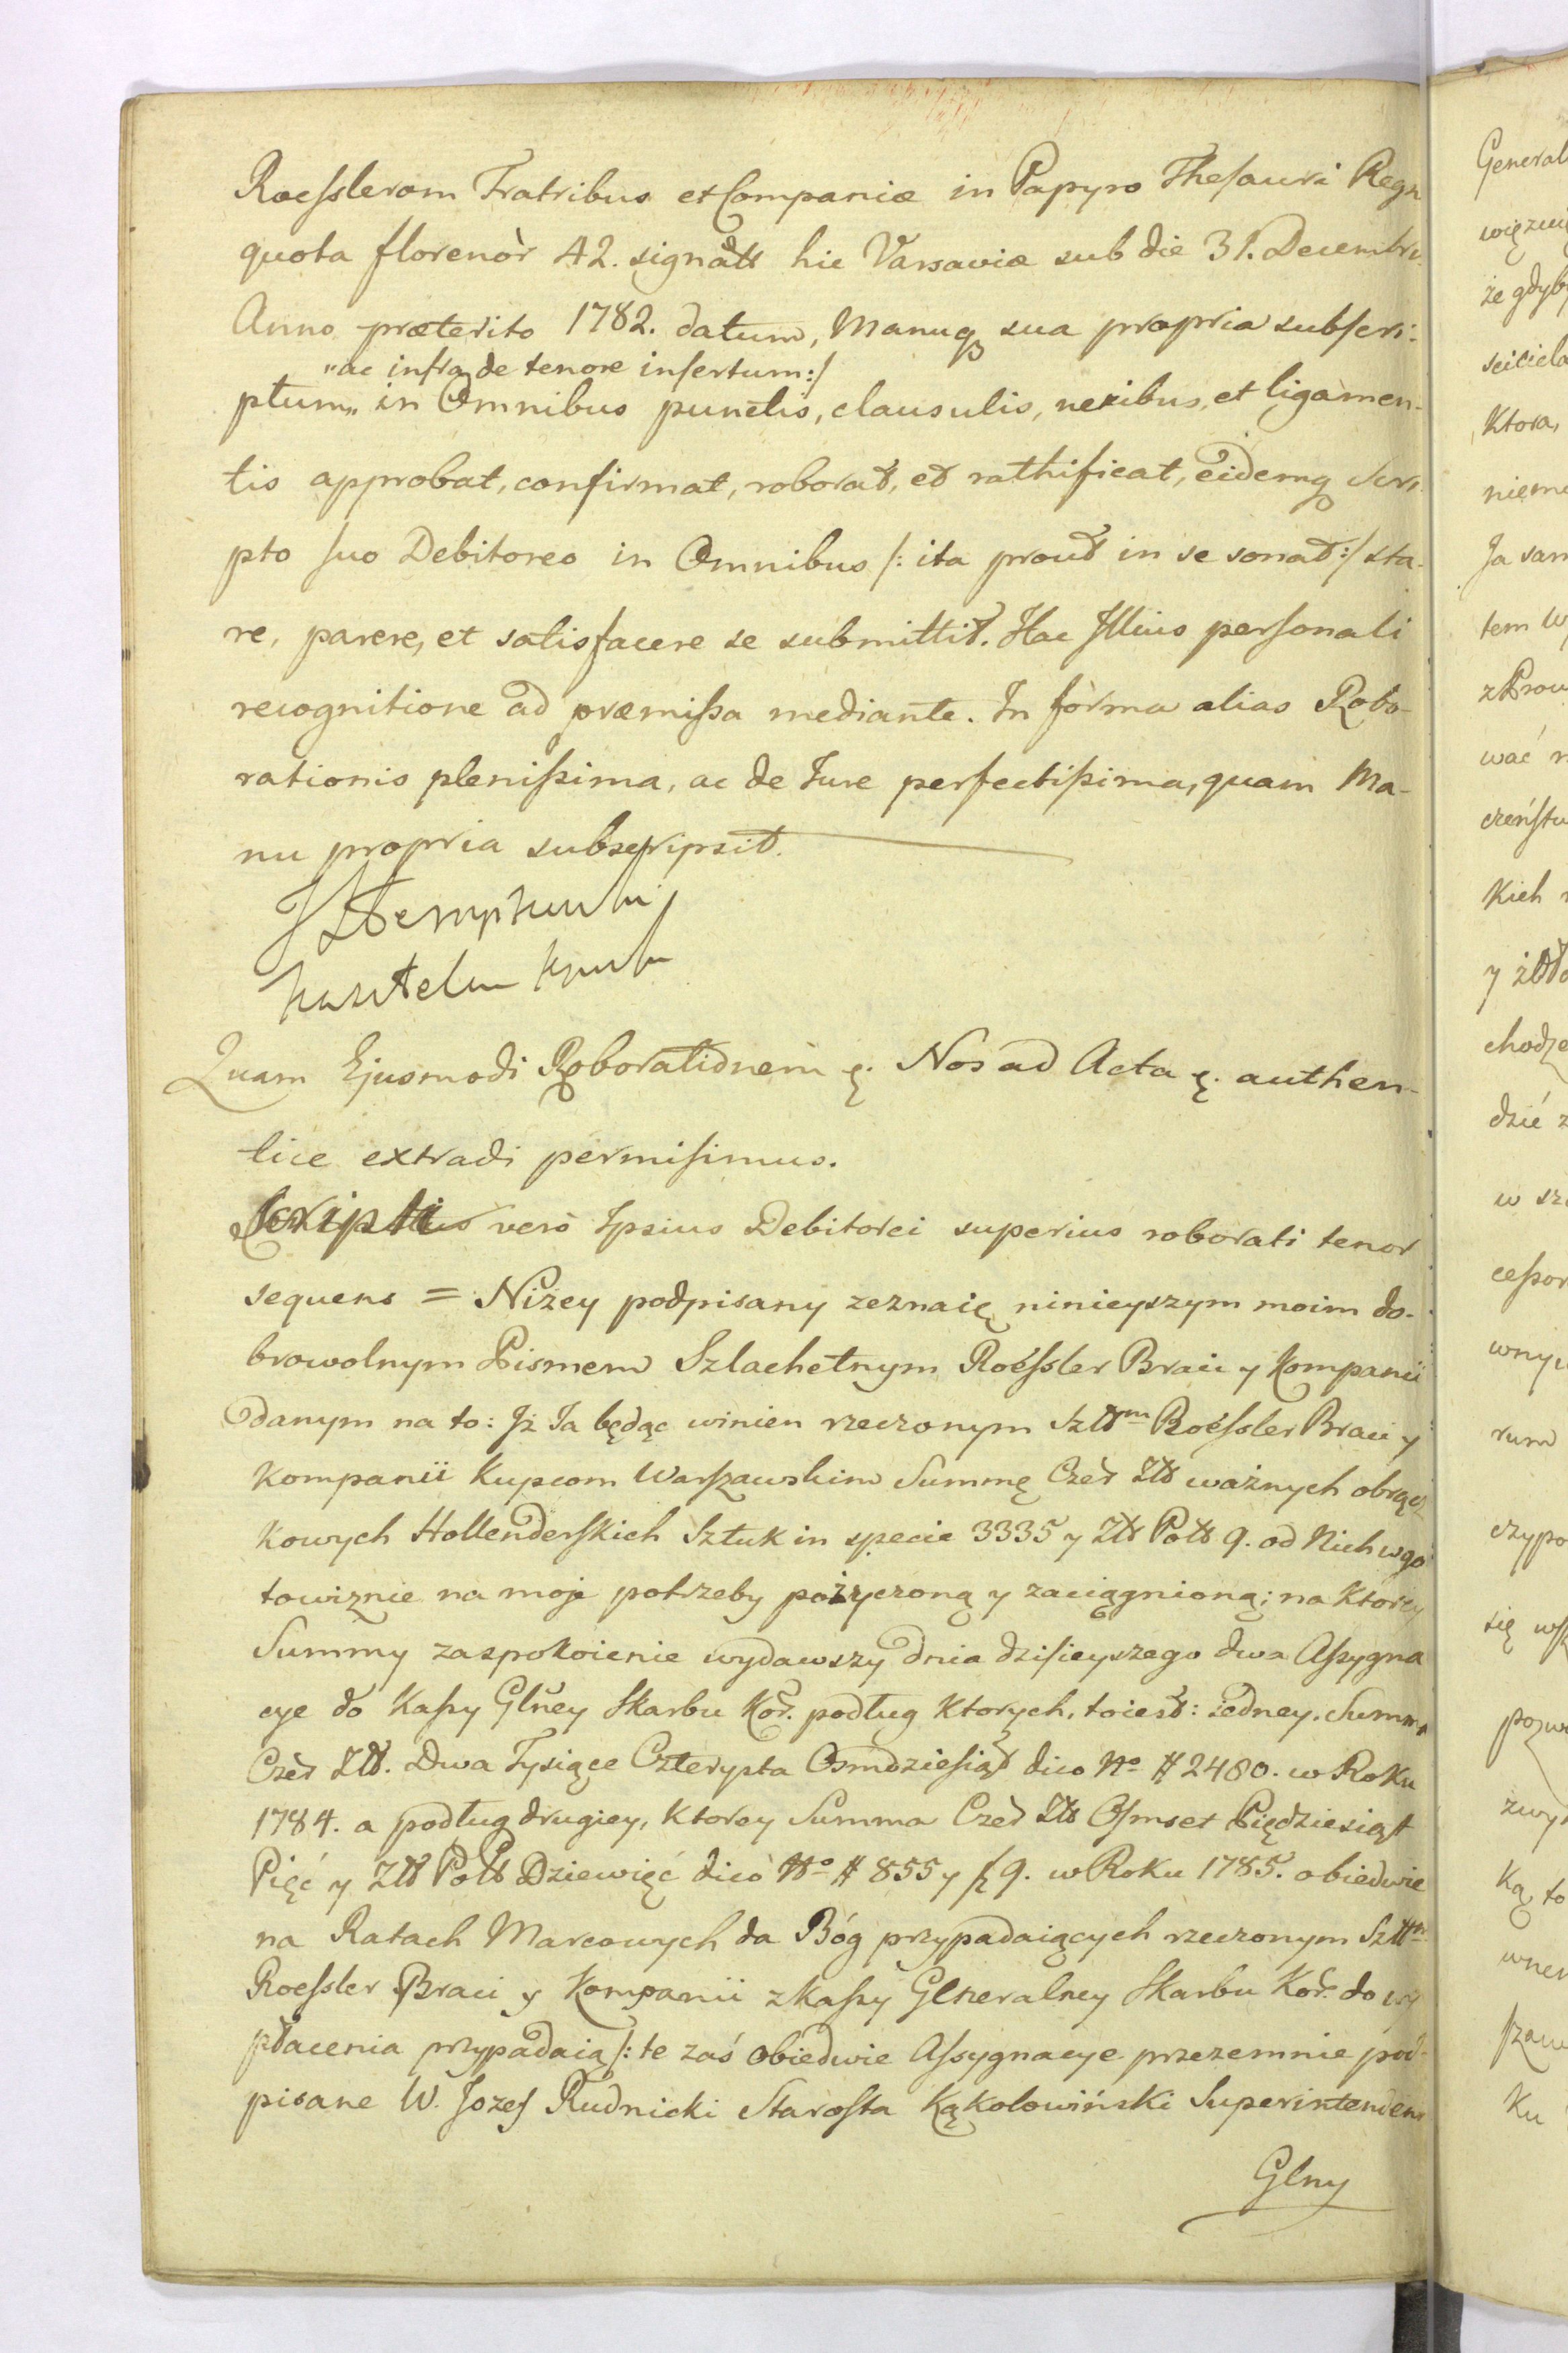 Roesslerom Fratribus et Companiæ in Papyro Thesauri Regn
quota florenòr 42. signatt hic Varsaviæ sub die 31. Decembris
Anno præterito 1782. datum, Manuq sua propria subscri:
"ac infra de tenore insertum:/
ptum„ in Omnibus punctis, clausulis, nexibus, et ligamen-
tis approbat, confirmat, roborat, et rathificat, eidemq Scri
pto suo Debitoreo in Omnibus /: ita prout in se sonat :/ sta-
re, parere, et satisfacere se submittit. Hac Illius personali
recognitione ad præmissa mediante. In fòrma alias Robo-
rationis plenissima, ac de Jure perfectissima, quam Ma-
nu propria subscripsit.
Quam Ejusmodi Roborationem ę. Nos ad Acta ę. authen-
tice extradi permisimus.
Scripti verò Ipsius Debitorei superius roborati tenor
sequens = Niżey podpisany zeznaię ninieyszym moim do-
browolnym Pismem Szlachetnym Roéssler Braci y Kompanii
danym na to: Jż Ja będąc winien rzeczonym Szttm Roéssler Braci y
Kompanii Kupcom Warszawskim Summę Czèr Ztt ważnych obrącz
kowych Hollenderskich Sztuk in specie 3335 y Ztt Poltt 9. od Nich w go
towiznie na moje potrzeby pożyczoną y zaciągnioną; na Ktorey
Summy zaspokoienie wydawszy dnia dzisieyszego dwa Assygna
cye do Kassy Glney Skarbu Kor. podług Ktorych, toiest: iedney. Summa
Czèr Ztt. Dwa Tysiące Czterysta Osmdziesiąt dico No # 2480. w Roku
1784. a podług drugiey, Ktorey Summa Czèr Ztt Osmset Pięćdziesiąt
Pięć y Ztt Poltt Dziewięć dicò No # 855 y f 9. w Roku 1785. obiedwie
na Ratach Marcowych da Bóg przypadaiących rzeczonym Szttm
Roessler Braci y Kompanii z Kassy Generalney Skarbu Kor. do wy
płacenia przypadaią /: te zaś obiedwie Assygnacye przezemnie pod-
pisane W. Jozef Rudnicki Starosta Kąkolowiński Superintendent
Glny
General
że gdyb
Ktora,
Ja sam
tem w
wać n
czeństw
Kich
chodze
dzić z
w sz
wny
rum
czypo
się
Ką to
Ku